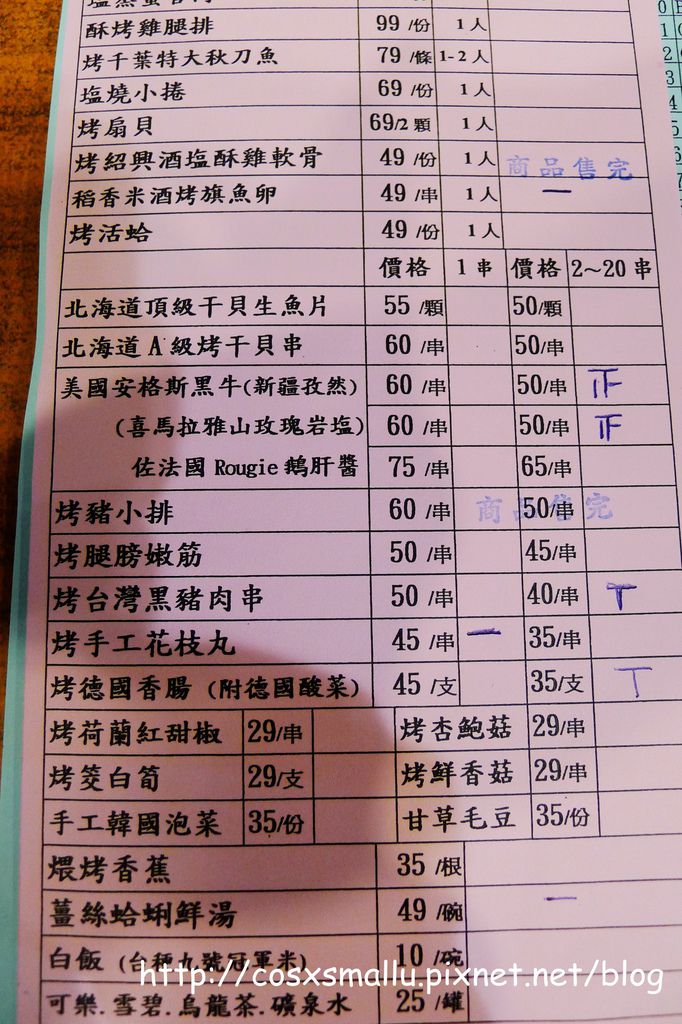 酥烤雞腿排 99/份 1人
烤千葉特大秋刀魚 79/條 1-2人
塩燒小捲 69/份 1人
烤扇貝 69/2顆 1人
烤紹興酒塩酥雞軟骨 49/份 1人 商品售完
稻香米酒烤旗魚卵 49/串 1人 一
烤活蛤 49/份 1人
價格 1串 價格 2~20串
北海道頂級干貝生魚片 55/顆 50/顆
北海道A級烤干貝串 60/串 50/串
美國安格斯黑牛(新疆孜然) 60/串 50/串
(喜馬拉雅山玫瑰岩塩) 60/串 50/串
佐法國Rougie鵝肝醬 75/串 65/串
烤豬小排 60/串 50/串 商品售完
烤腿膀嫩筋 50/串 45/串
烤台灣黑豬肉串 50/串 40/串 丅
烤手工花枝丸 45/串 一 35/串
烤德國香腸(附德國酸菜) 45/支 35/支 丅
烤荷蘭紅甜椒 29/串 烤杏鮑菇 29/串
烤筊白筍 29/支 烤鮮香菇 29/串
手工韓國泡菜 35/份 甘草毛豆 35/份
煨烤香蕉 35/根
薑絲蛤蜊鮮湯 49/碗 一
白飯(台稉九號冠軍米) 10/碗
可樂.雪碧.烏龍茶.礦泉水 25/罐
http://cosxsmallu.pixnet.net/blog